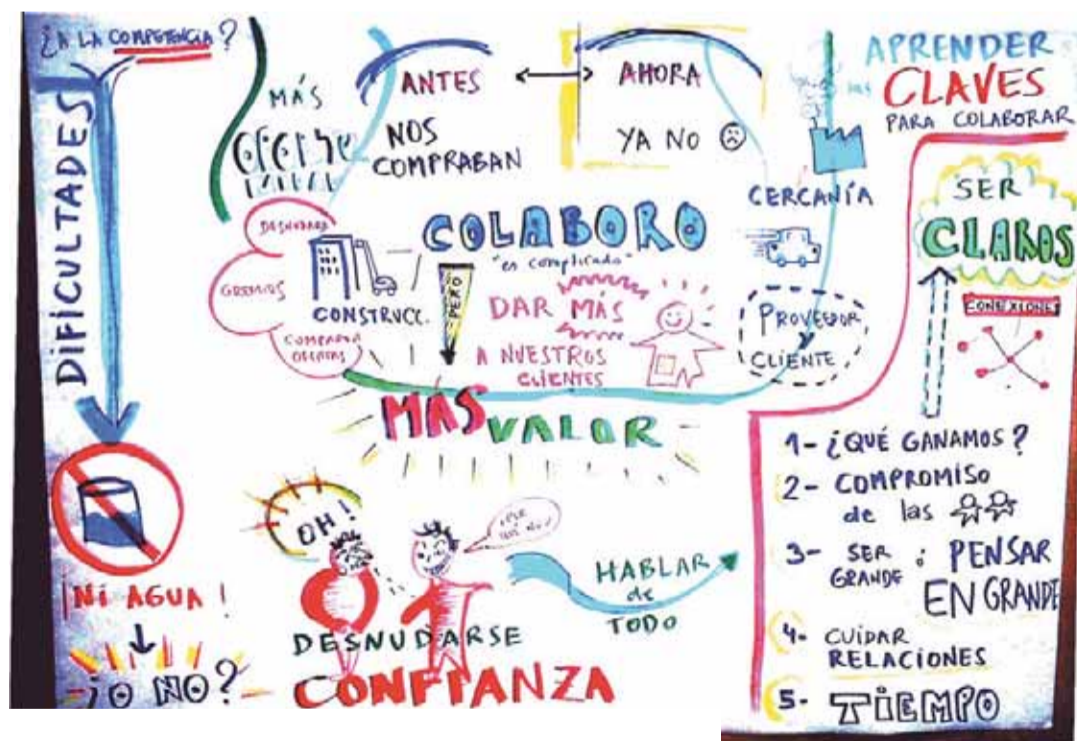 ¿A LA COMPETENCIA?
DIFICULTADES
¡NI AGUA!
¿O NO?
MÁS
ANTES
NOS
COMPRABAN
AHORA
YA NO
DESNUDARSE
GREMIOS
COMPARTIR
OFERTAS
CONSTRUCC.
COLABORO
"es complicado"
PERO
DAR MÁS
A NUESTROS
CLIENTES
MÁS
VALOR
CERCANÍA
PROVEEDOR
Y
CLIENTE
OH!
DESNUDARSE
CONFIANZA
HABLAR
de
TODO
APRENDER
las
CLAVES
PARA COLABORAR
SER
CLAROS
CONEXIONES
1- ¿QUÉ GANAMOS?
2- COMPROMISO
de las
3- SER
GRANDE : PENSAR
EN GRANDE
4- CUIDAR
RELACIONES
5- TIEMPO